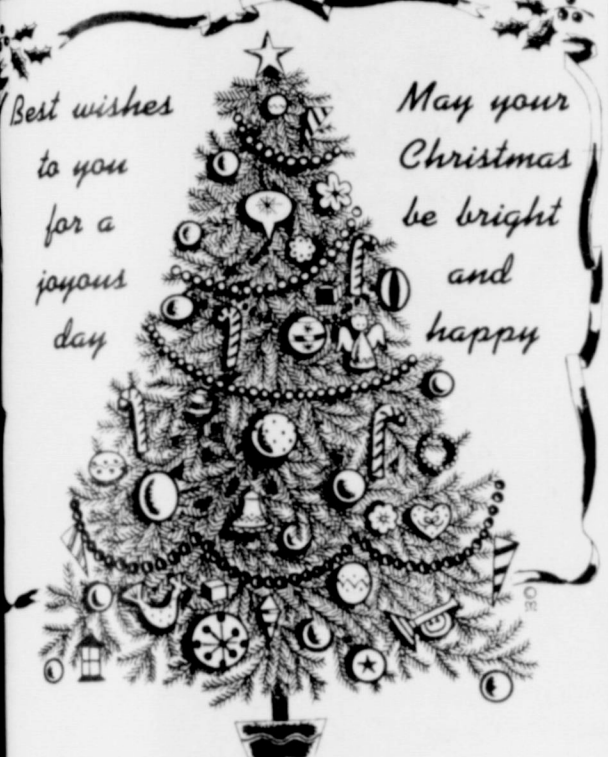 Best wishes
to you
for a
joyous
day
May your
Christmas
be bright
and
happy